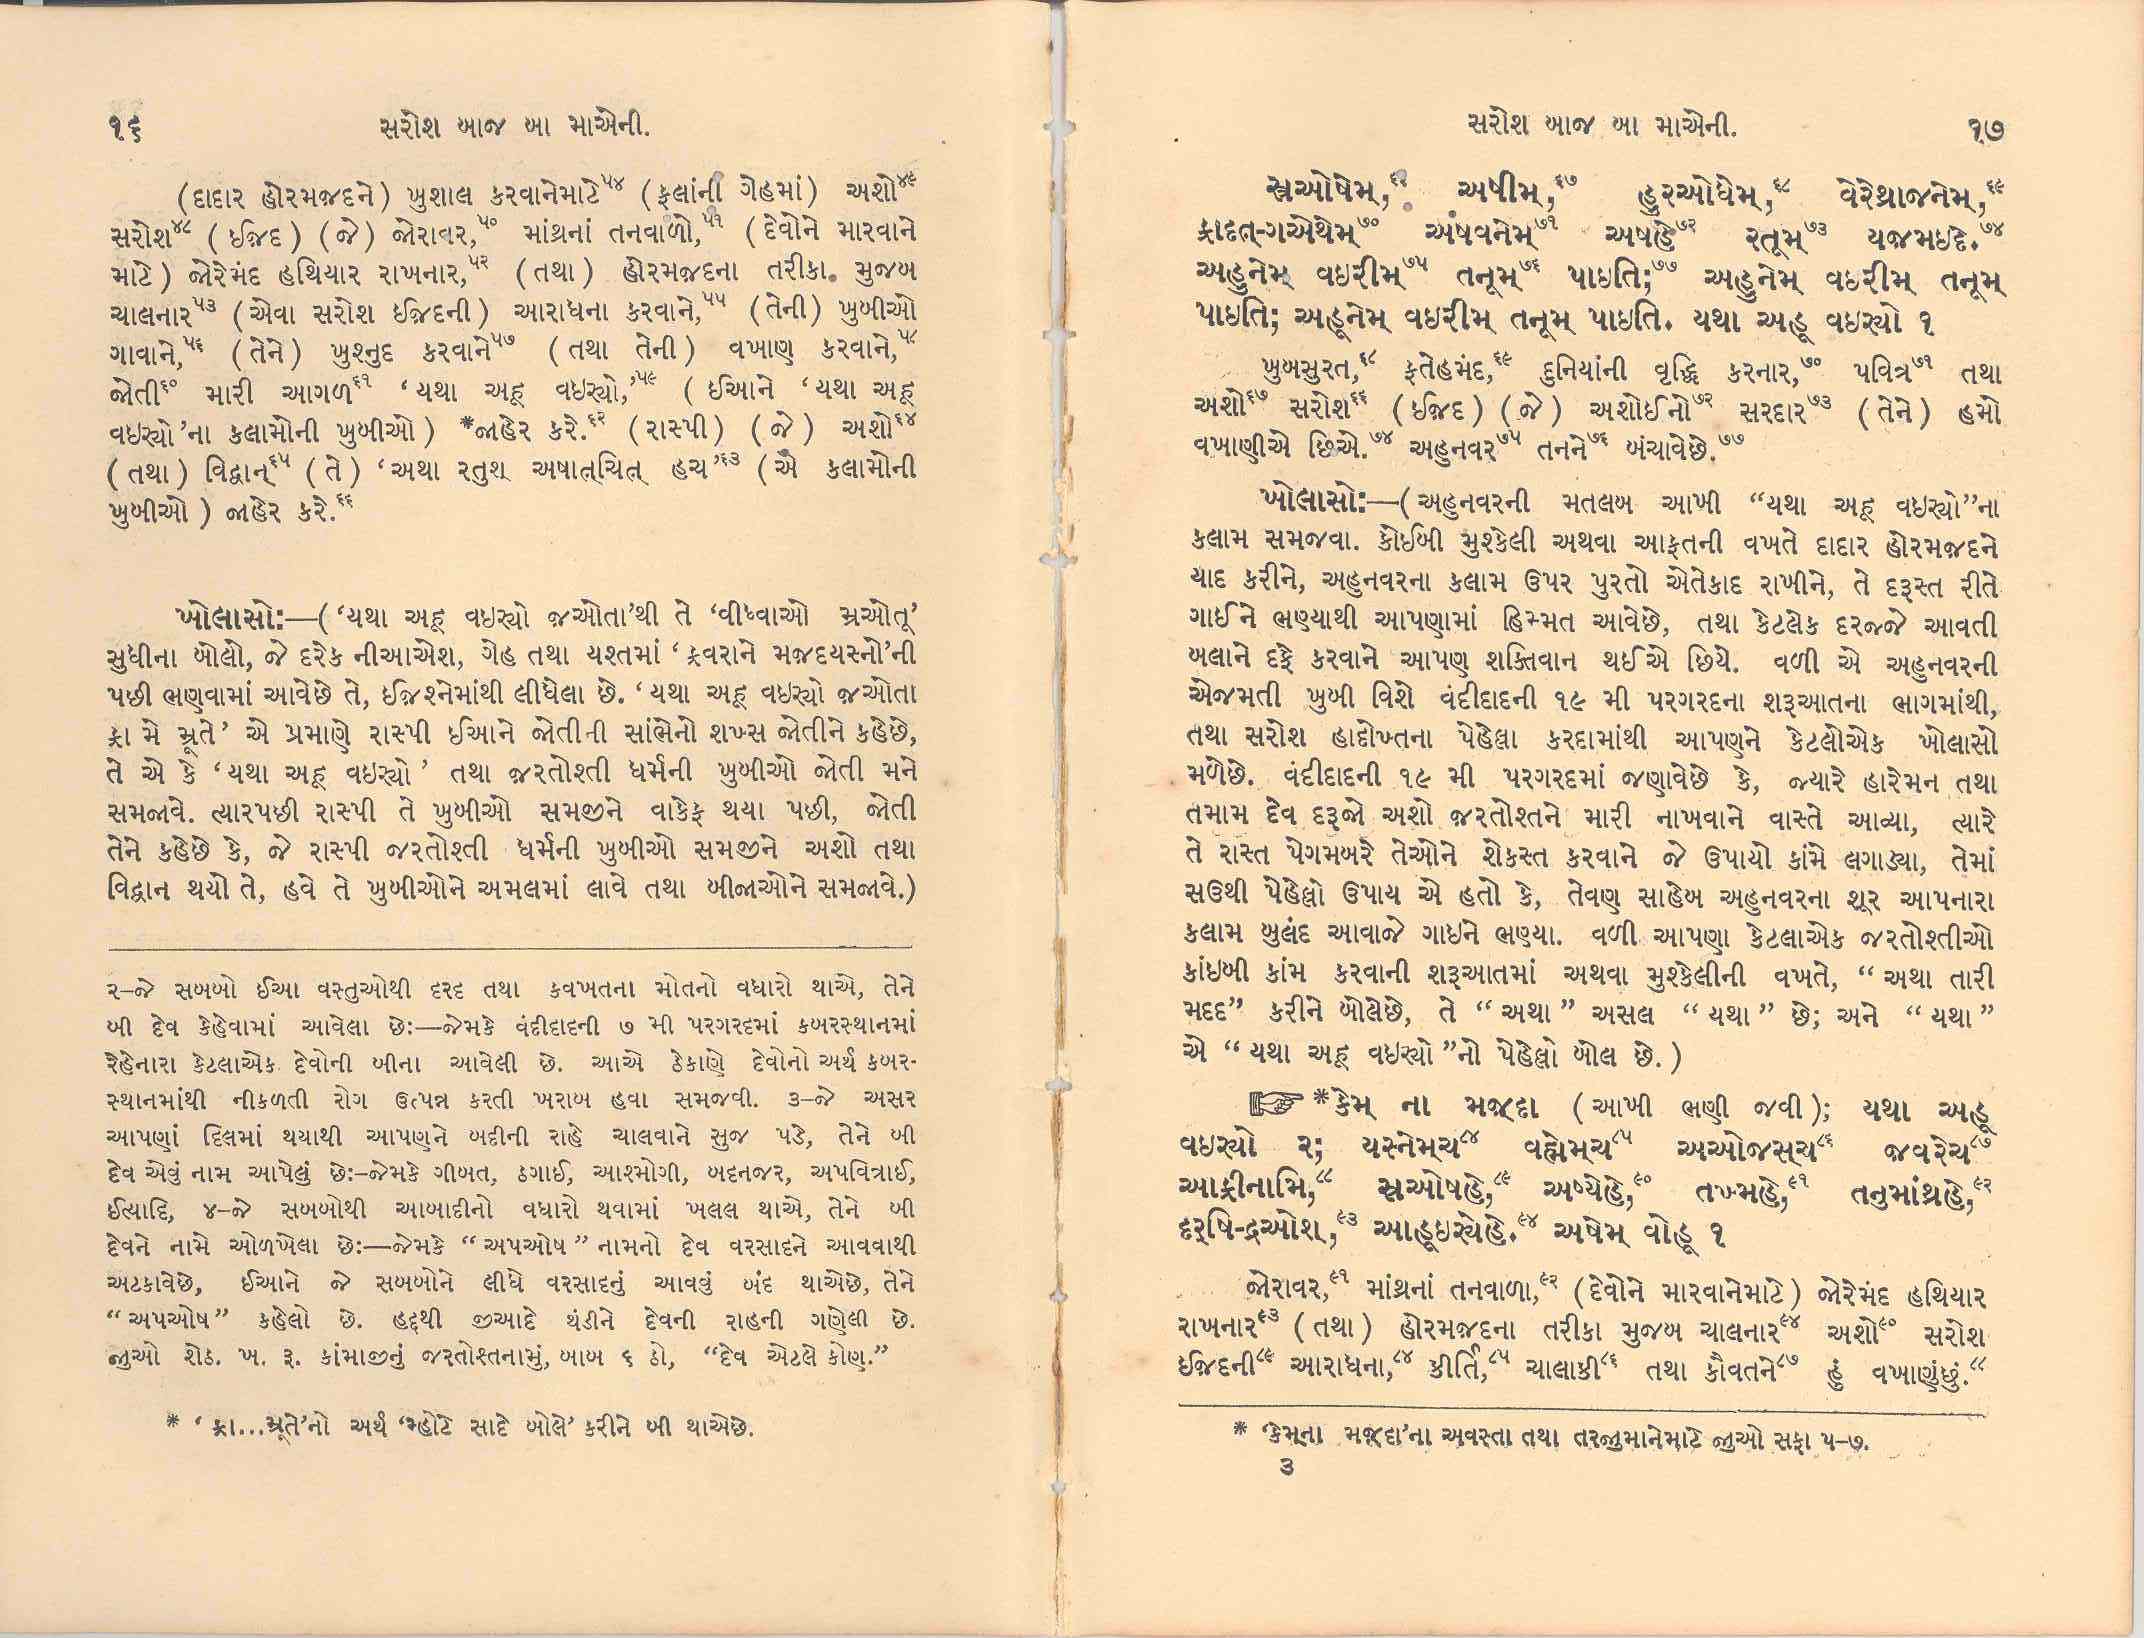 ૧૬
સરોશ બાજ બા માએની.
(દાદાર હોરમજ઼દને) ખુશાલ કરવાનેમાટે૫૪ (ફલાંની ગેહમાં) અશો૪૯
સરોશ૪૮ (ઈજ઼દ) (જે) જોરાવર,૫૦ માંથ્રનાં તનવાળો,૫૧ (દેવોને મારવાને
માટે) જોરેમંદ હથિયાર રાખનાર,૫૨ (તથા) હોરમજ઼દના તરીકા મુજબ
ચાલનાર૫૩ (એવા સરોશ ઈજ઼દની) આરાધના કરવાને,૫૫ (તેની) ખુબીઓ
ગાવાને,૫૬ (તેને) ખુશ્નુદ કરવાને૫૭ (તથા તેની) વખાણ કરવાને,૫૮
જોતી૬૦ મારી આગળ૬૧ ‘યથા અહૂ વઇર્યો,’૫૯ (ઈઆને ‘યથા અહૂ
વઇર્યો’ના કલામોની ખુબીઓ) *જાહેર કરે.૬૨ (રાસ્પી) (જે) અશો૬૪
(તથા) વિદ્વાન્૬૫ (તે) ‘અથા રતુશ્ અષાત્ચિત્ હચ’૬૩ (એ કલામોની
ખુબીઓ) જાહેર કરે.૬૬
ખોલાસો:—(‘યથા અહૂ વઇર્યો જ઼ઓતા’થી તે ‘વીધ્વાઓ મ્રઓતૂ’
સુધીના બોલો, જે દરેક નીઆએશ, ગેહ તથા યશ્તમાં ‘ફ્રવરાને મજ઼દયસ્નો’ની
પછી ભણવામાં આવેછે તે, ઈજ઼શ્નેમાંથી લીધેલા છે. ‘યથા અહૂ વઇર્યો જ઼ઓતા
ફ્રા મે મ્રૂતે’ એ પ્રમાણે રાસ્પી ઈઆને જોતીની સાંભેનો શખ્સ જોતીને કહેછે,
તે એ કે ‘યથા અહૂ વઇર્યો’ તથા જ઼રતોશ્તી ધર્મની ખુબીઓ જોતી મને
સમજાવે. ત્યારપછી રાસ્પી તે ખુબીઓ સમજીને વાકેફ થયા પછી, જોતી
તેને કહેછે કે, જે રાસ્પી જરતોશ્તી ધર્મની ખુબીઓ સમજીને અશો તથા
વિદ્વાન થયો તે, હવે તે ખુબીઓને અમલમાં લાવે તથા બીજાઓને સમજાવે.)
૨–જે સબબો ઈઆ વસ્તુઓથી દરદ તથા કવખતના મોતનો વધારો થાએ, તેને
બી દેવ કેહેવામાં આવેલા છે:—જેમકે વંદીદાદની ૭ મી પરગરદમાં કબરસ્થાનમાં
રેહેનારા કેટલાએક દેવોની બીના આવેલી છે. આએ ઠેકાણે દેવોનો અર્થ કબર-
સ્થાનમાંથી નીકળતી રોગ ઉત્પન્ન કરતી ખરાબ હવા સમજવી. ૩–જે અસર
આપણાં દિલમાં થયાથી આપણને બદીની રાહે ચાલવાને સુજ પડે, તેને બી
દેવ એવું નામ આપેલું છે:–જેમકે ગીબત, ઠગાઈ, આશ્મોગી, બદનજર, અપવિત્રાઈ,
ઈત્યાદિ, ૪–જે સબબોથી આબાદીનો વધારો થવામાં ખલલ થાએ, તેને બી
દેવને નામે ઓળખેલા છે:—જેમકે “અપઓષ” નામનો દેવ વરસાદને આવવાથી
અટકાવેછે, ઈઆને જે સબબોને લીધે વરસાદનું આવવું બંદ થાએછે, તેને
“અપઓષ” કહેલો છે. હદ્દથી જીઆદે થંડીને દેવની રાહની ગણેલી છે.
જુઓ શેઠ. ખ. રૂ. કાંમાજીનું જરતોસ્તનામું, બાબ ૬ ઠો, “દેવ એટલે કોણ.”
* ‘ફ્રા...મ્રૂતે’નો અર્થ ‘મ્હોટે સાદે બોલે’ કરીને બી થાએછે.
સરોશ બાજ બા માએની.
૧૭
સ્રઓષેમ્,૬૬ અષીમ્,૬૭ હુરઓધેમ્,૬૮ વેરેથ્રાજનેમ્,૬૯
ફ્રાદત્-ગએથેમ્૭૦ અષવનેમ્૭૧ અષહે૭૨ રતૂમ્૭૩ યજ઼મઇદે.૭૪
અહુનેમ્ વઇરીમ્૭૫ તનૂમ્૭૬ પાઇતિ;૭૭ અહુનેમ્ વઇરીમ્ તનૂમ્
પાઇતિ; અહૂનેમ્ વઇરીમ્ તનૂમ્ પાઇતિ. યથા અહૂ વઇર્યો ૧
ખુબસુરત,૬૮ ફતેહમંદ,૬૯ દુનિયાંની વૃદ્ધિ કરનાર,૭૦ પવિત્ર૭૧ તથા
અશો૬૭ સરોશ૬૬ (ઈજ઼દ) (જે) અશોઈનો૭૨ સરદાર૭૩ (તેને) હમો
વખાણીએ છિએ.૭૪ અહુનવર૭૫ તનને૭૬ બંચાવેછે.૭૭
ખોલાસો:—(અહુનવરની મતલબ આખી “યથા અહૂ વઇર્યો”ના
કલામ સમજવા. કોઈબી મુશ્કેલી અથવા આફતની વખતે દાદાર હોરમજ઼દને
યાદ કરીને, અહુનવરના કલામ ઉપર પુરતો એતેકાદ રાખીને, તે દરૂસ્ત રીતે
ગાઈને ભણ્યાથી આપણામાં હિમ્મત આવેછે, તથા કેટલેક દરજજે આવતી
બલાને દફે કરવાને આપણ શક્તિવાન થઈએ છિયે. વળી એ અહુનવરની
એજમતી ખુબી વિશે વંદીદાદની ૧૯ મી પરગરદના શરૂઆતના ભાગમાંથી,
તથા સરોશ હાદોખ્તના પેહેલા કરદામાંથી આપણને કેટલોએક ખોલાસો
મળેછે. વંદીદાદની ૧૯ મી પરગરદમાં જણાવેછે કે, જ્યારે હારેમન તથા
તમામ દેવ દરૂજો અશો જ઼રતોશ્તને મારી નાખવાને વાસ્તે આવ્યા, ત્યારે
તે રાસ્ત પેગમબરે તેઓને શેકસ્ત કરવાને જે ઉપાયો કાંમે લગાડ્યા, તેમાં
સઉથી પેહેલો ઉપાય એ હતો કે, તેવણ સાહેબ અહુનવરના શૂર આપનારા
કલામ બુલંદ આવાજે ગાઇને ભણ્યા. વળી આપણા કેટલાએક જરતોશ્તીઓ
કાંઇબી કાંમ કરવાની શરૂઆતમાં અથવા મુશ્કેલીની વખતે, “અથા તારી
મદદ” કરીને બોલેછે, તે “અથા” અસલ “યથા” છે; અને “યથા”
એ “યથા અહૂ વઇર્યો”નો પેહેલો બોલ છે.)
☞ *કેમ્ ના મજ઼્દા (આખી ભણી જવી); યથા અહૂ
વઇર્યો ૨; યસ્નેમ્ચ૮૪ વહ્મેમ્ચ૮૫ અઓજસ્ચ૮૬ જ઼વરેચ૮૭
આફ્રીનામિ,૮૮ સ્રઓષહે,૮૯ અષ્યેહે,૯૦ તખ્મહે,૯૧ તનુમાંથ્રહે,૯૨
દર્ષિ-દ્રઓશ,૯૩ આહૂઇર્યેહે.૯૪ અષેમ્ વોહૂ ૧
જોરાવર,૯૧ માંથ્રનાં તનવાળા,૯૨ (દેવોને મારવાનેમાટે) જોરેમંદ હથિયાર
રાખનાર૯૩ (તથા) હોરમજ઼દના તરીકા મુજબ ચાલનાર૯૪ અશો૯૦ સરોશ
ઈજ઼દની૮૯ આરાધના,૮૪ કીર્તિ,૮૫ ચાલાકી૮૬ તથા કૌવતને૮૭ હું વખાણુંછું.૮૮
* ‘કેમ્ના મજ઼્દા’ના અવસ્તા તથા તરજુમાનેમાટે જુઓ સફા ૫–૭.
૩